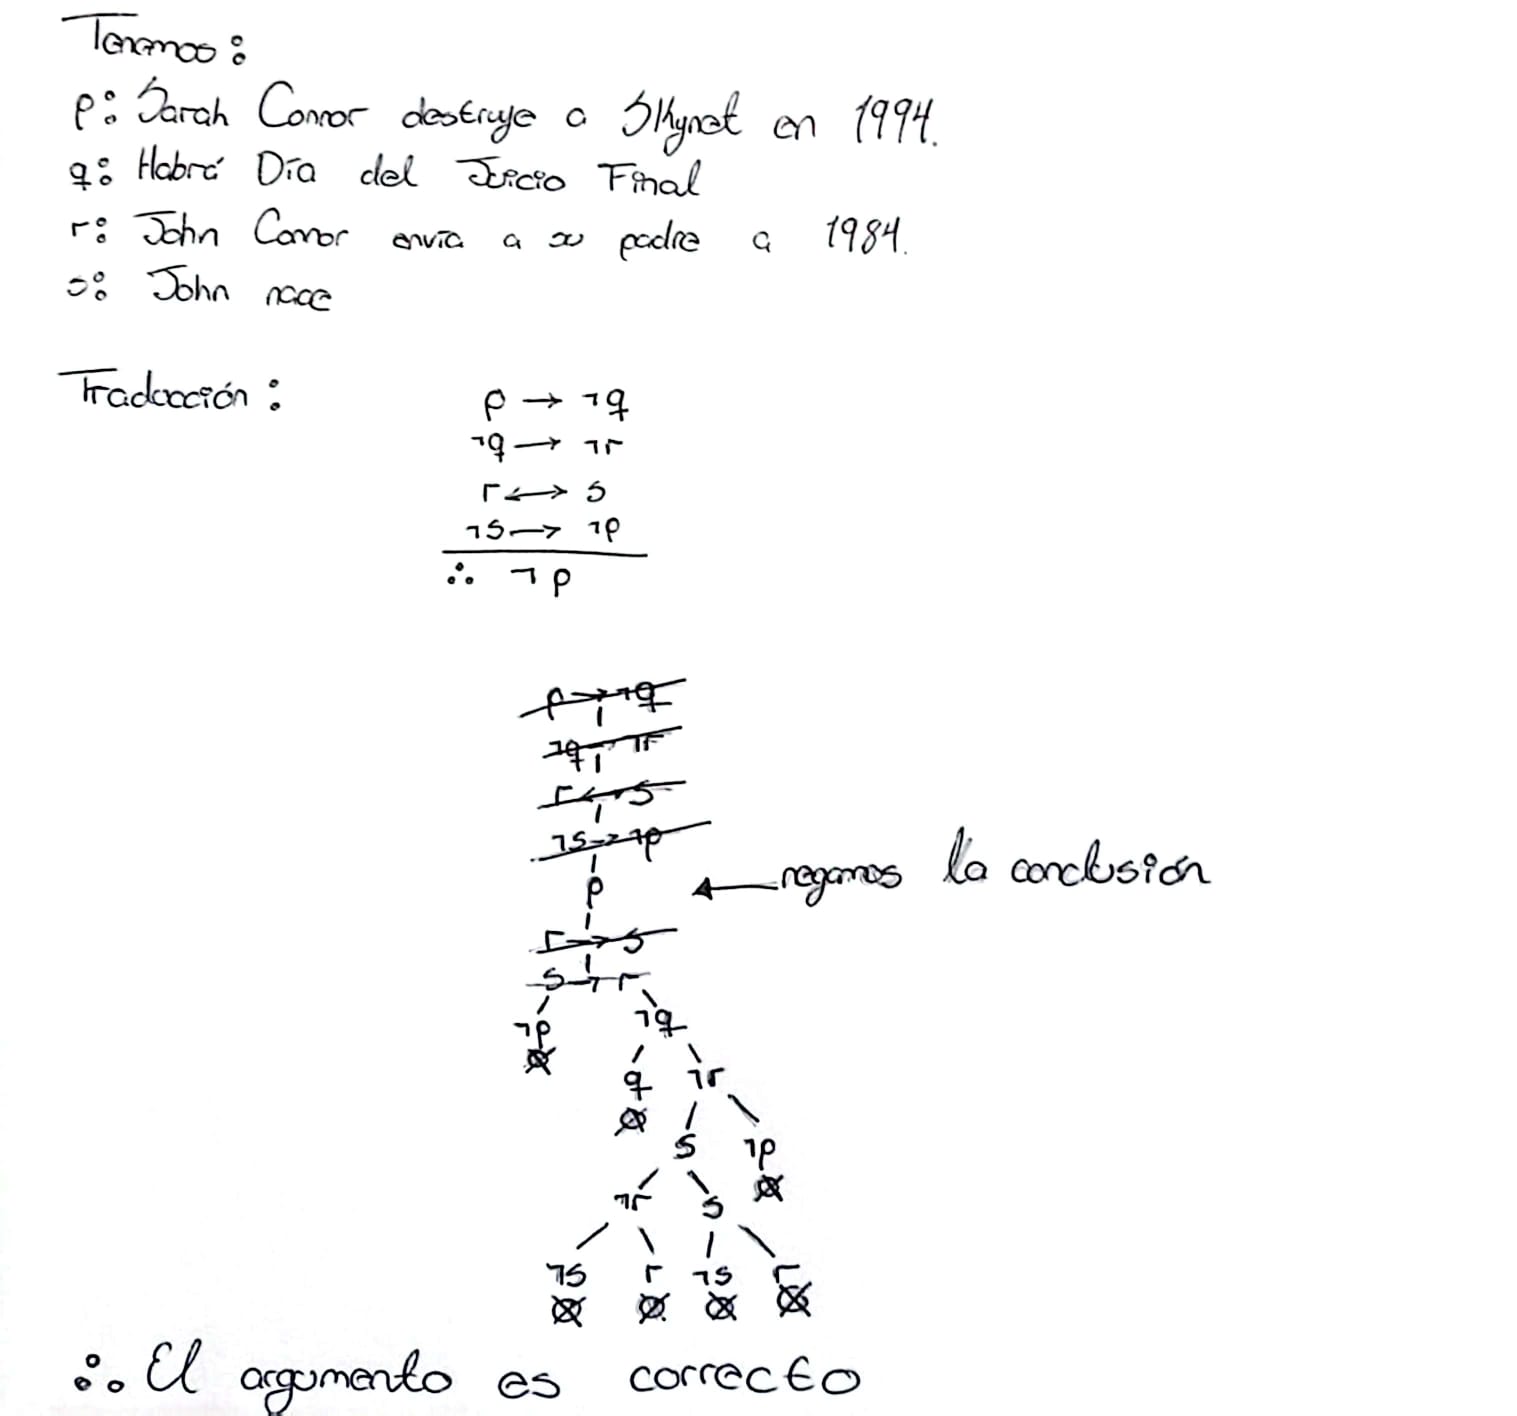 Tenemos:
p: Sarah Connor destruye a Skynet en 1994.
q: Habrá Día del Juicio Final
r: John Connor envía a su padre a 1984.
s: John nace
Traducción:
p → ¬q
¬q → ¬r
r ↔ s
¬s → ¬p
∴ ¬p
p → ¬q
¬q → ¬r
r ↔ s
¬s → ¬p
p ← negamos la conclusión
r → s
s → r
¬p ¬q
q ¬r
s ¬p
¬r s
¬s r ¬s r
∴ El argumento es correcto